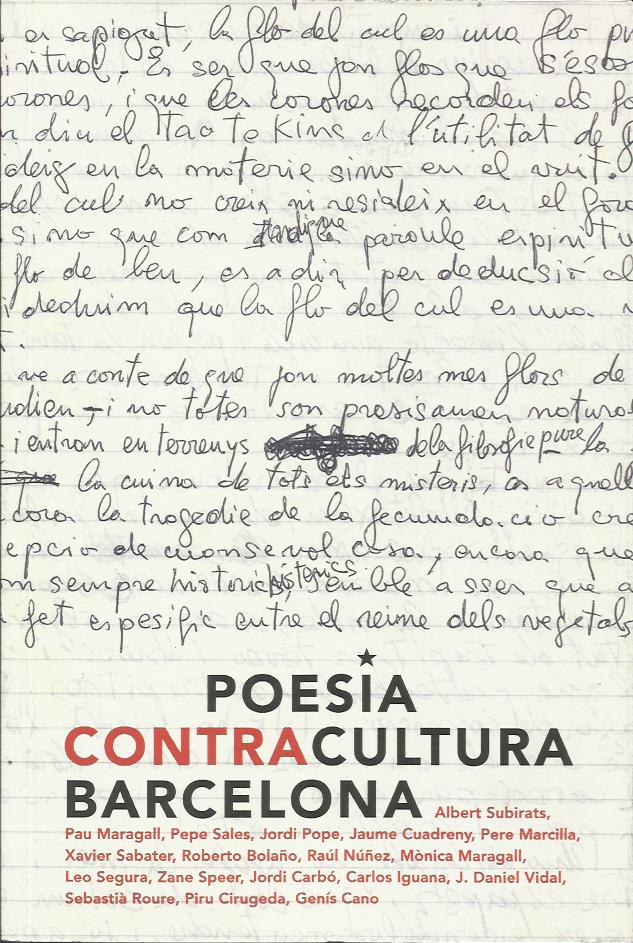 er sapigut, la flo del cul es una flo pu
iritual. Es ser que jan flos que s'esco
corones, i que les corones recorden els fo
n diu el Tao te King et l'utilitat de
ideig en la materie sino en el vuit.
del cul no creix ni resideix en el fora
sino que com paraule espiritu
flo de ben, es a dir, per deducsió al
i deduim que la flo del cul es una
ve a conte de que jan moltes mes flors de
udien — i no totes son presisamen natura
i entran en terrenys de la filosofie pure la
la cuina de tots els misteris, es aquell
cora la tragedie de la fecundacio cre
epcio de cuansevol cosa, encora que
om sempre historic histerics, senble asser que a
fet espesific entre el reime dels vegetals
POESIA
CONTRACULTURA
BARCELONA Albert Subirats,
Pau Maragall, Pepe Sales, Jordi Pope, Jaume Cuadreny, Pere Marcilla,
Xavier Sabater, Roberto Bolaño, Raúl Núñez, Mònica Maragall,
Leo Segura, Zane Speer, Jordi Carbó, Carlos Iguana, J. Daniel Vidal,
Sebastià Roure, Piru Cirugeda, Genís Cano